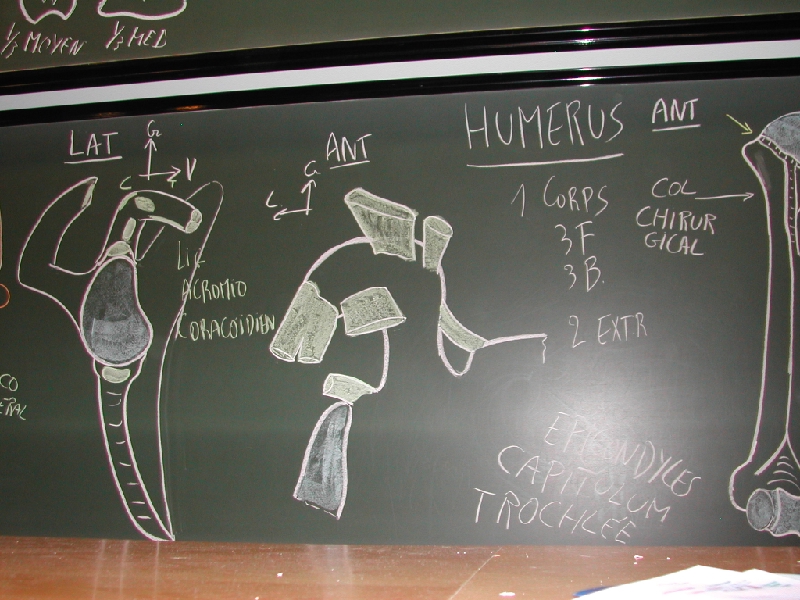 1/3 MOYEN 1/3 MED
LAT
V
C
LIG
ACROMIO
CORACOÏDIEN
ANT
HUMERUS ANT
1 CORPS
3F
3B.
2 EXTR
COL
CHIRUR
GICAL
EPICONDYLES
CAPITULUM
TROCHLÉE